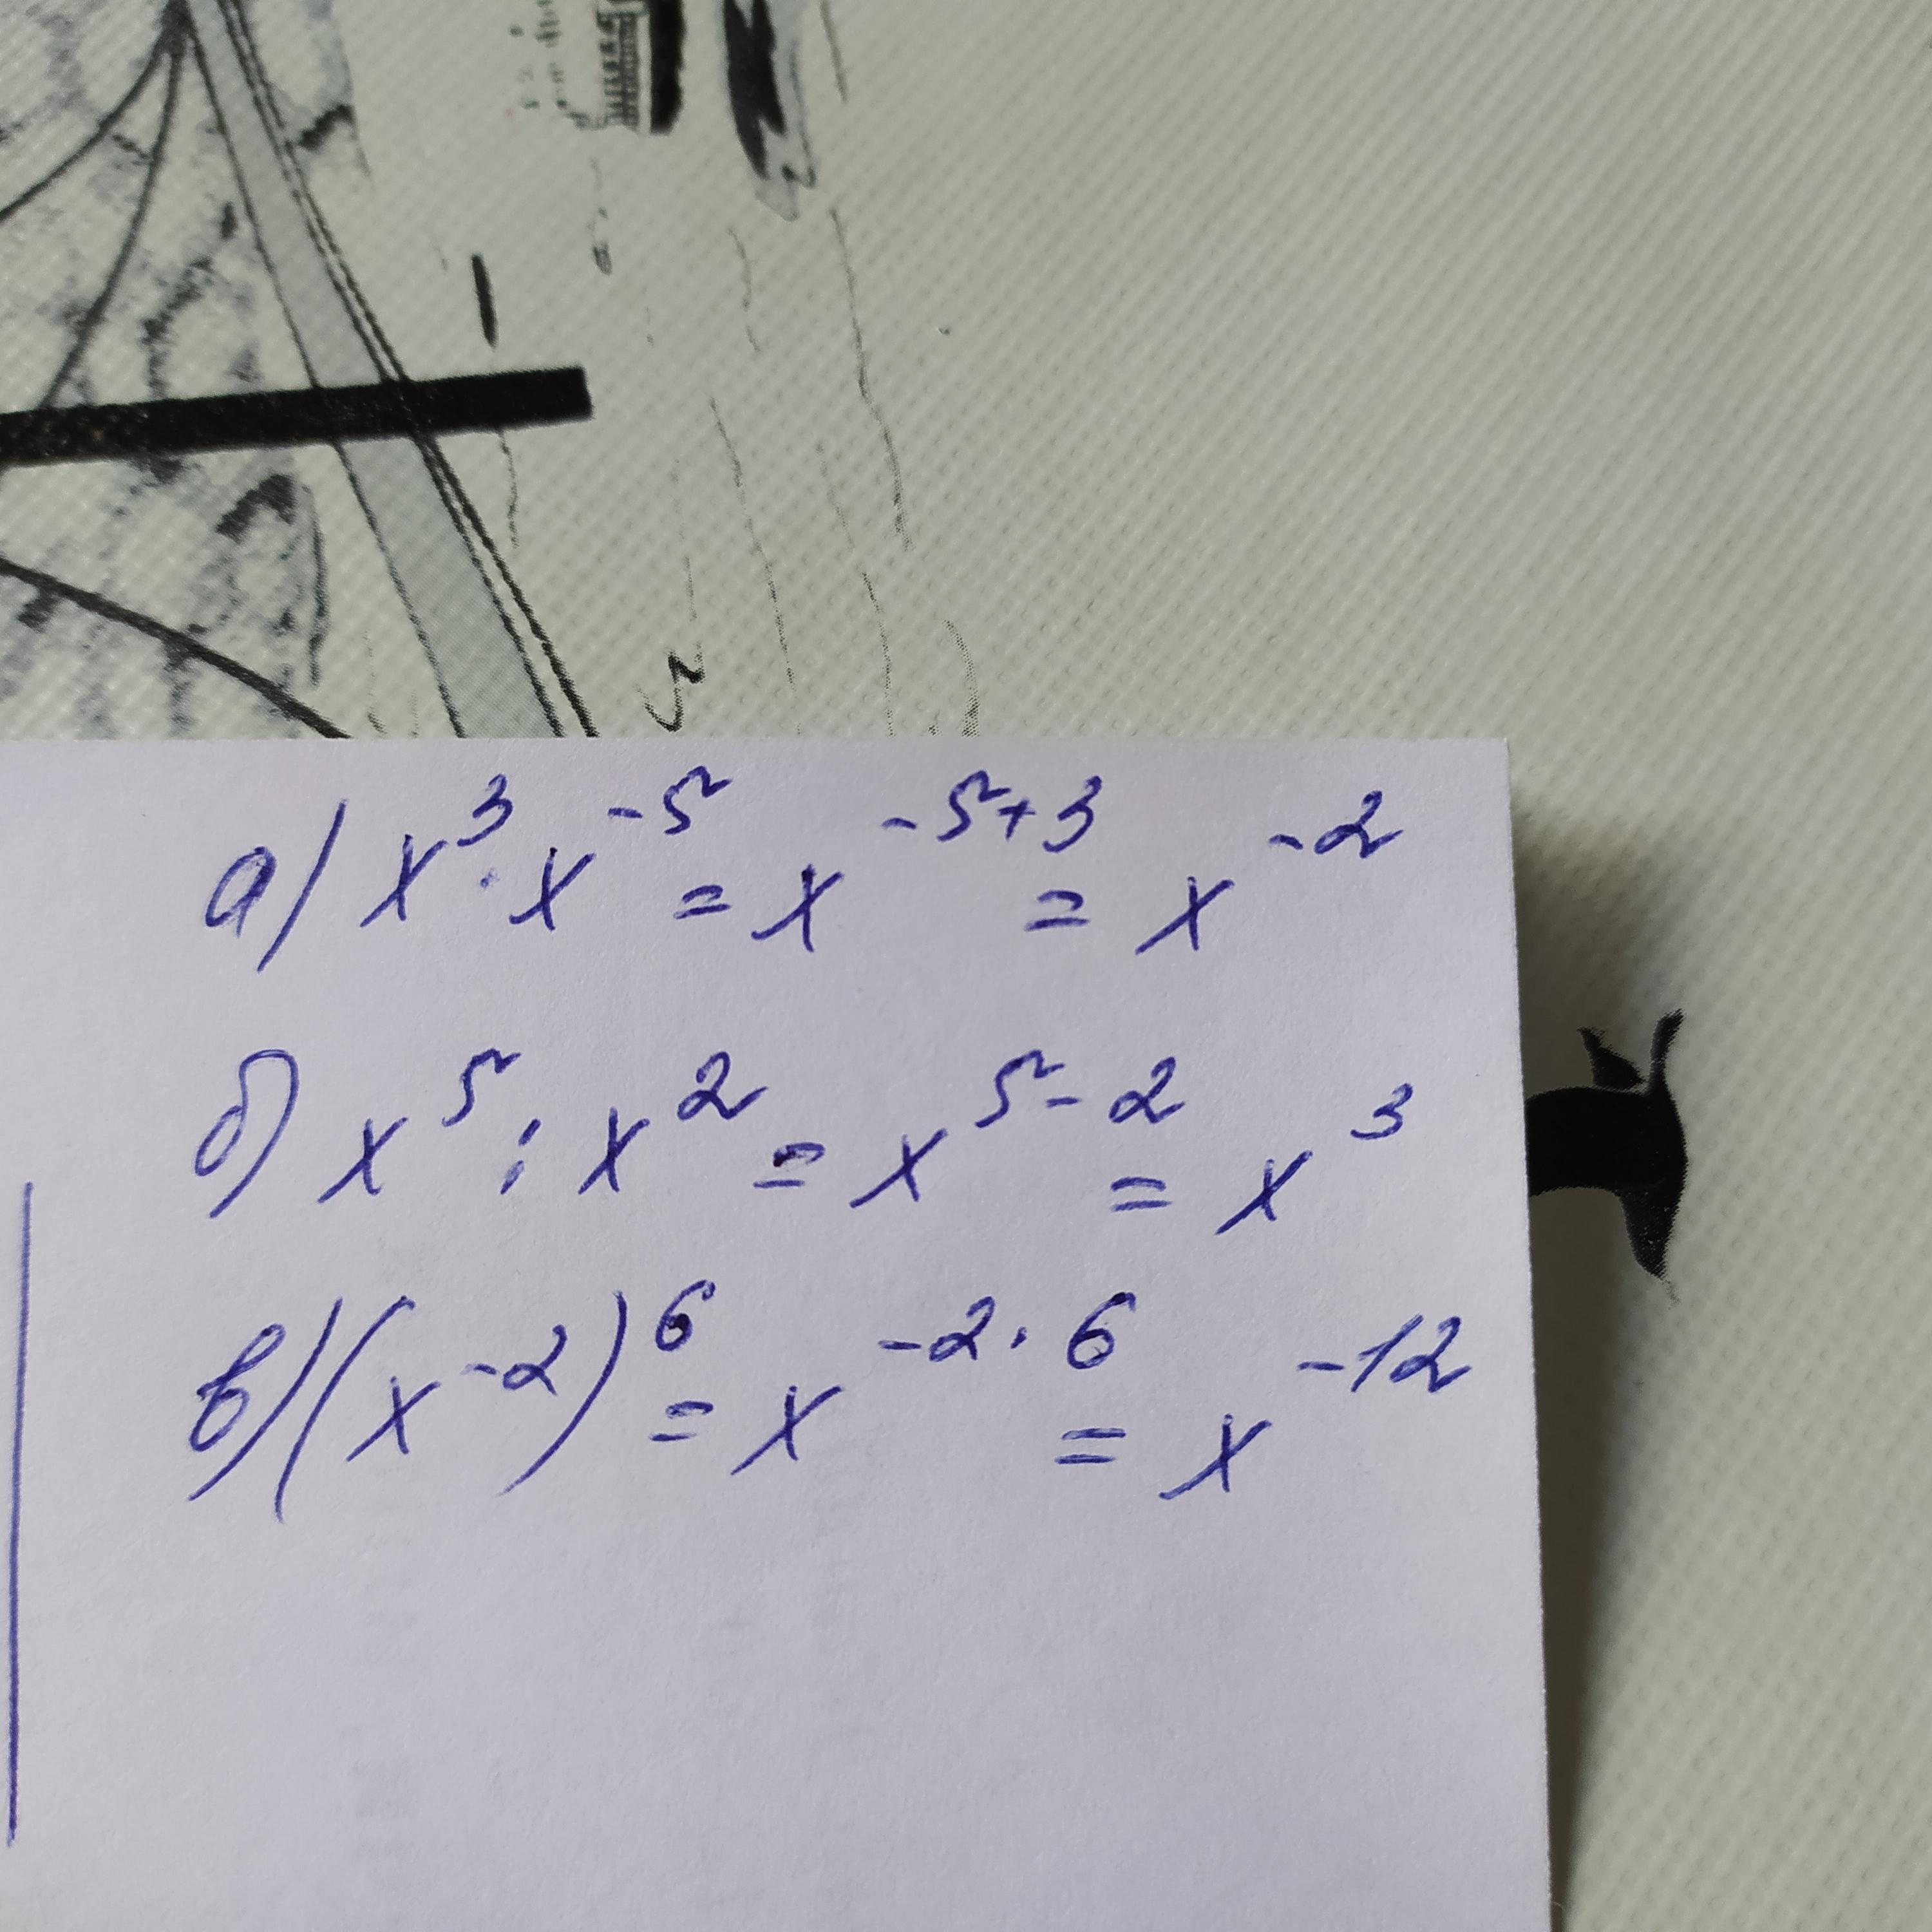 а) x³ · x⁻⁵ = x⁻⁵⁺³ = x⁻²
б) x⁵ : x² = x⁵⁻² = x³
в) (x⁻²)⁶ = x⁻²·⁶ = x⁻¹²